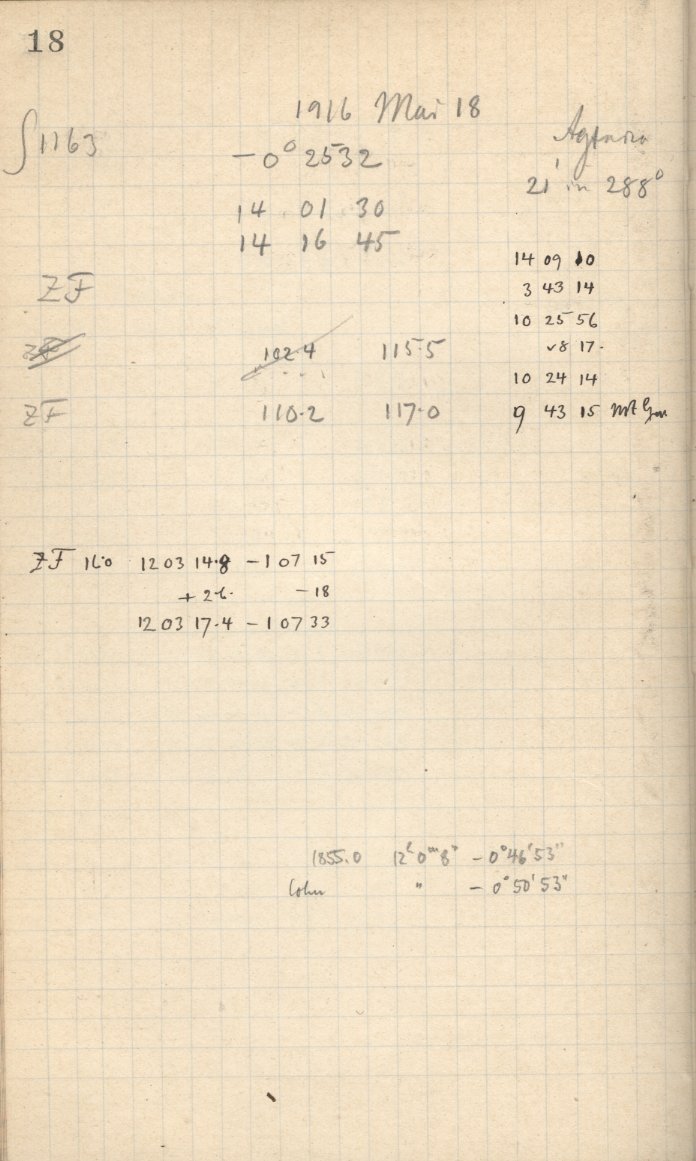 18
1916 Mai 18
∫1163
-0° 2532
21' in 288°
14 01 30
14 16 45
14 09 10
ZF
3 43 14
10 25 56
ZF 102.4 115.5
8 17.
10 24 14
ZF 110.2 117.0
9 43 15
ZF 16.0 12 03 14.8 -1 07 15
+ 2.6. - 18
12 03 17.4 - 1 07 33
1855.0 12h 0m 8s - 0° 46' 53"
Cohn " - 0° 50' 53"